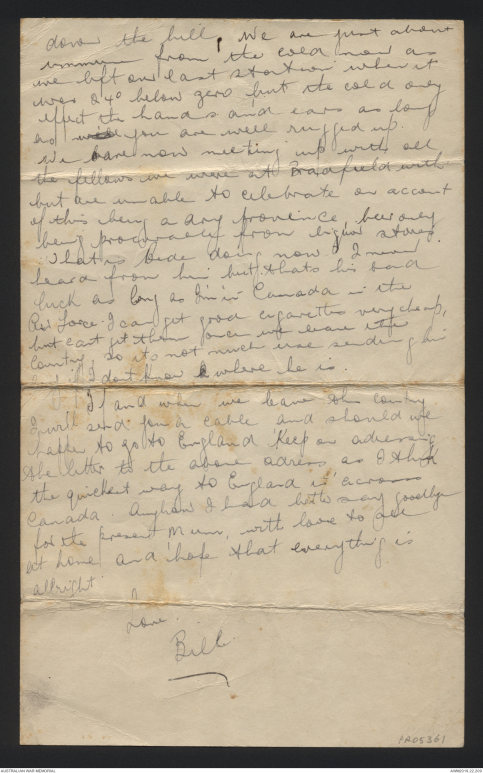 down the hill. We are just about
immune from the cold now as
we left our last station when it
was 24° below zero but the cold only
effect the hands and ears as long
as you are well rugged up.
We are now meeting up with all
the fellows we were at Bradfield with
but are unable to celebrate on account
of this being a dry province, beer only
being procurable from liquor stores.
What is Bede doing now? I never
heard from him but thats his bad
luck as long as I'm in Canada in the
Air Force. I can get good cigarettes very cheap,
but cant get them once we leave the
Country, so its not much use sending him
if I dont know where he is.
If and when we leave this country
I will send you a cable and should we
happen to go to England Keep on adressing
the letter to the above adress as I think
the quickest way to England is across
Canada. Anyhow I had better say goodbye
for the present Mum, with love to all
at home and hope that everything is
allright.
Love.
Bill
PR05361
AUSTRALIAN WAR MEMORIAL
AWM2019.22.205